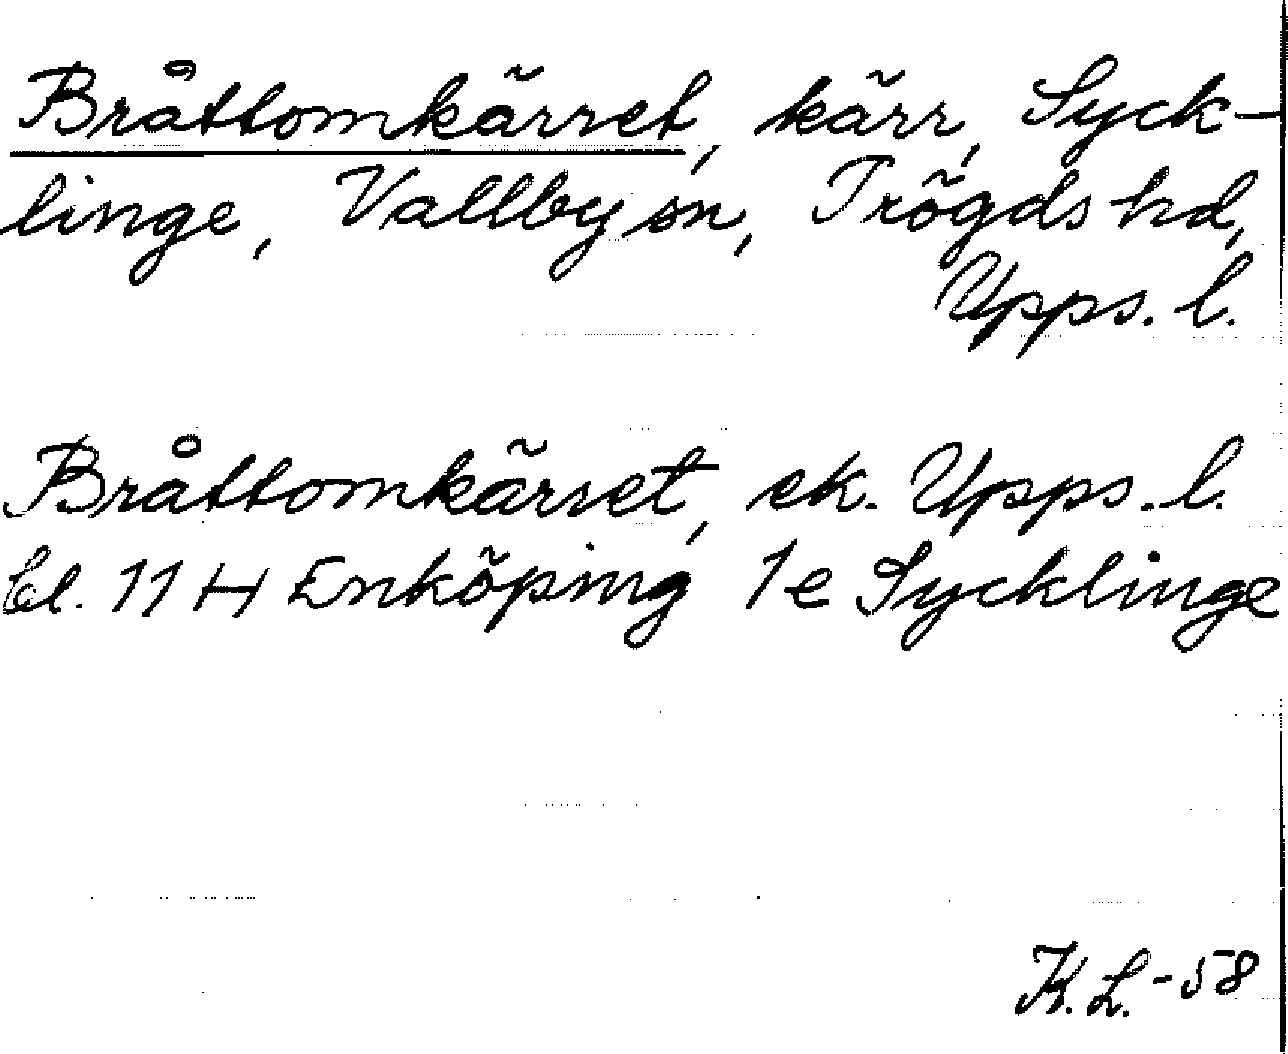 Bråttomkärret, kärr, Syck-
linge, Vallby sn, Trögds hd,
Upps. l.
Bråttomkärret, ek. Upps. l.
bl. 11 H Enköping 1e Sycklinge
K.L.-58